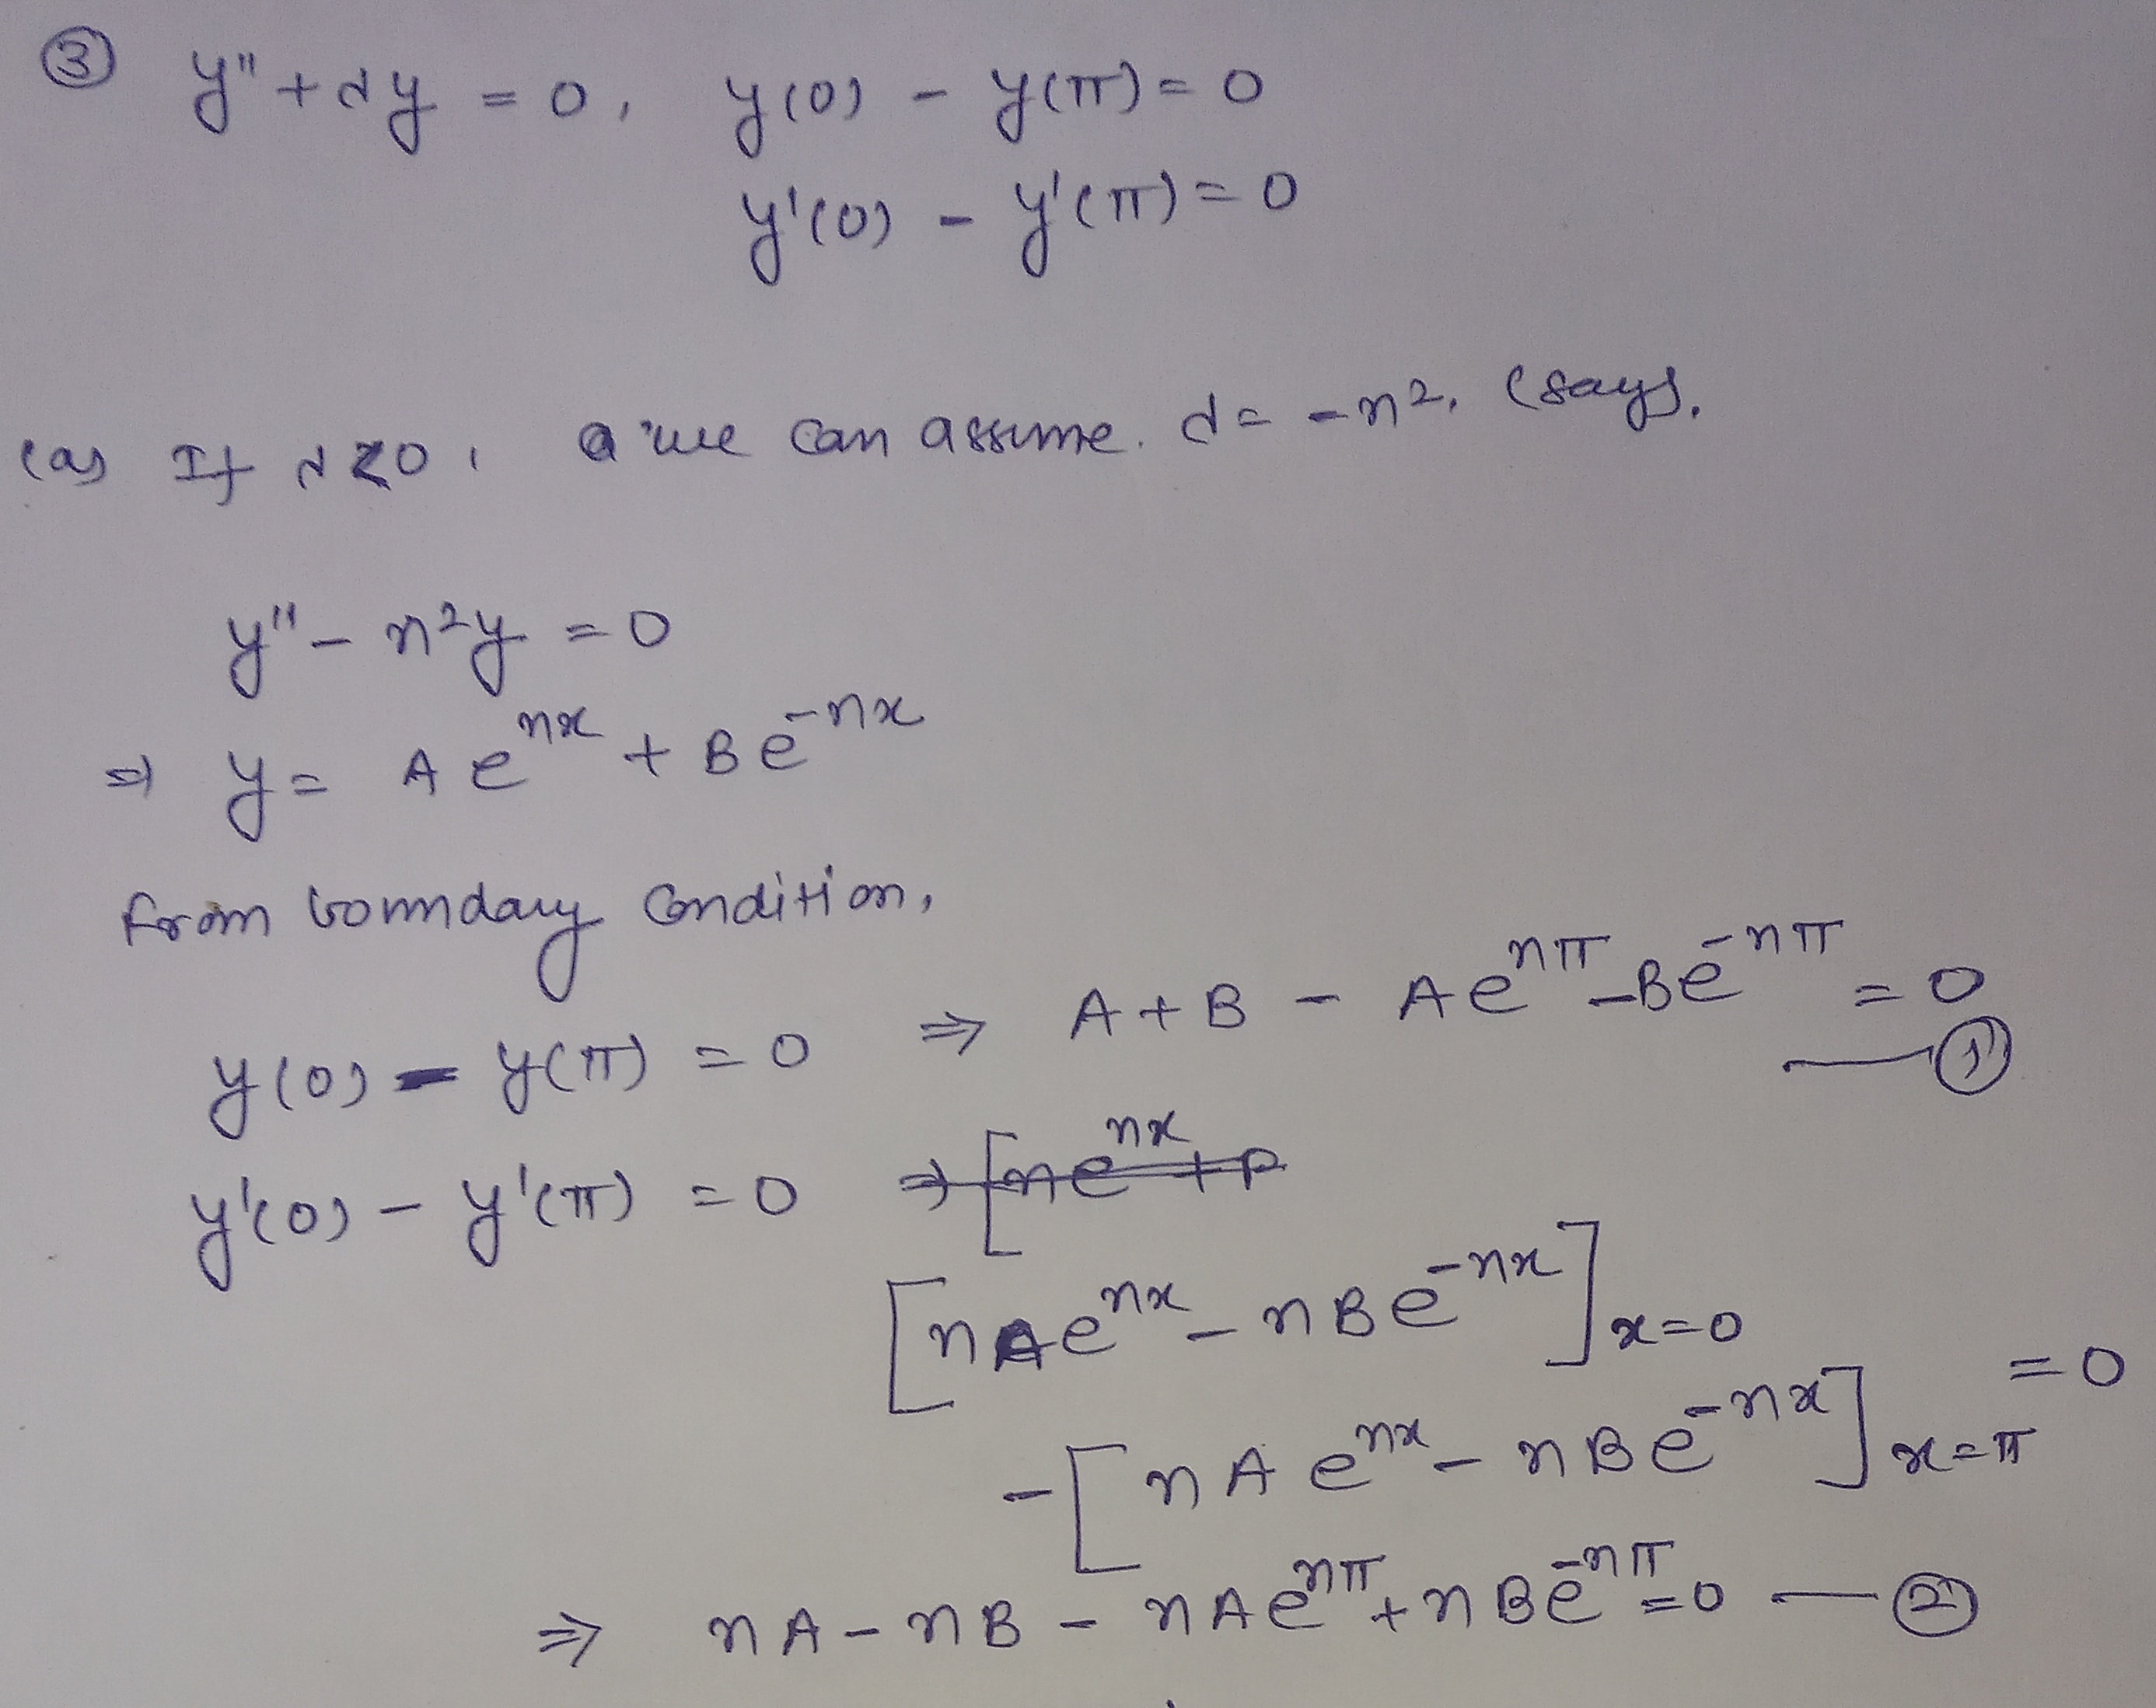 ③ y" + λy = 0, y(0) - y(π) = 0
y'(0) - y'(π) = 0
(a) If λ < 0, we can assume. λ = -n². (say).
y" - n²y = 0
⇒ y = A e^{nx} + B e^{-nx}
From boundary condition,
y(0) - y(π) = 0 ⇒ A + B - A e^{nπ} - B e^{-nπ} = 0
— ①
y'(0) - y'(π) = 0 ⇒ [n e^{nx} +
[nA e^{nx} - nB e^{-nx}]_{x=0}
= 0
- [nA e^{nx} - nB e^{-nx}]_{x=π}
⇒ nA - nB - nA e^{nπ} + nB e^{-nπ} = 0 — ②